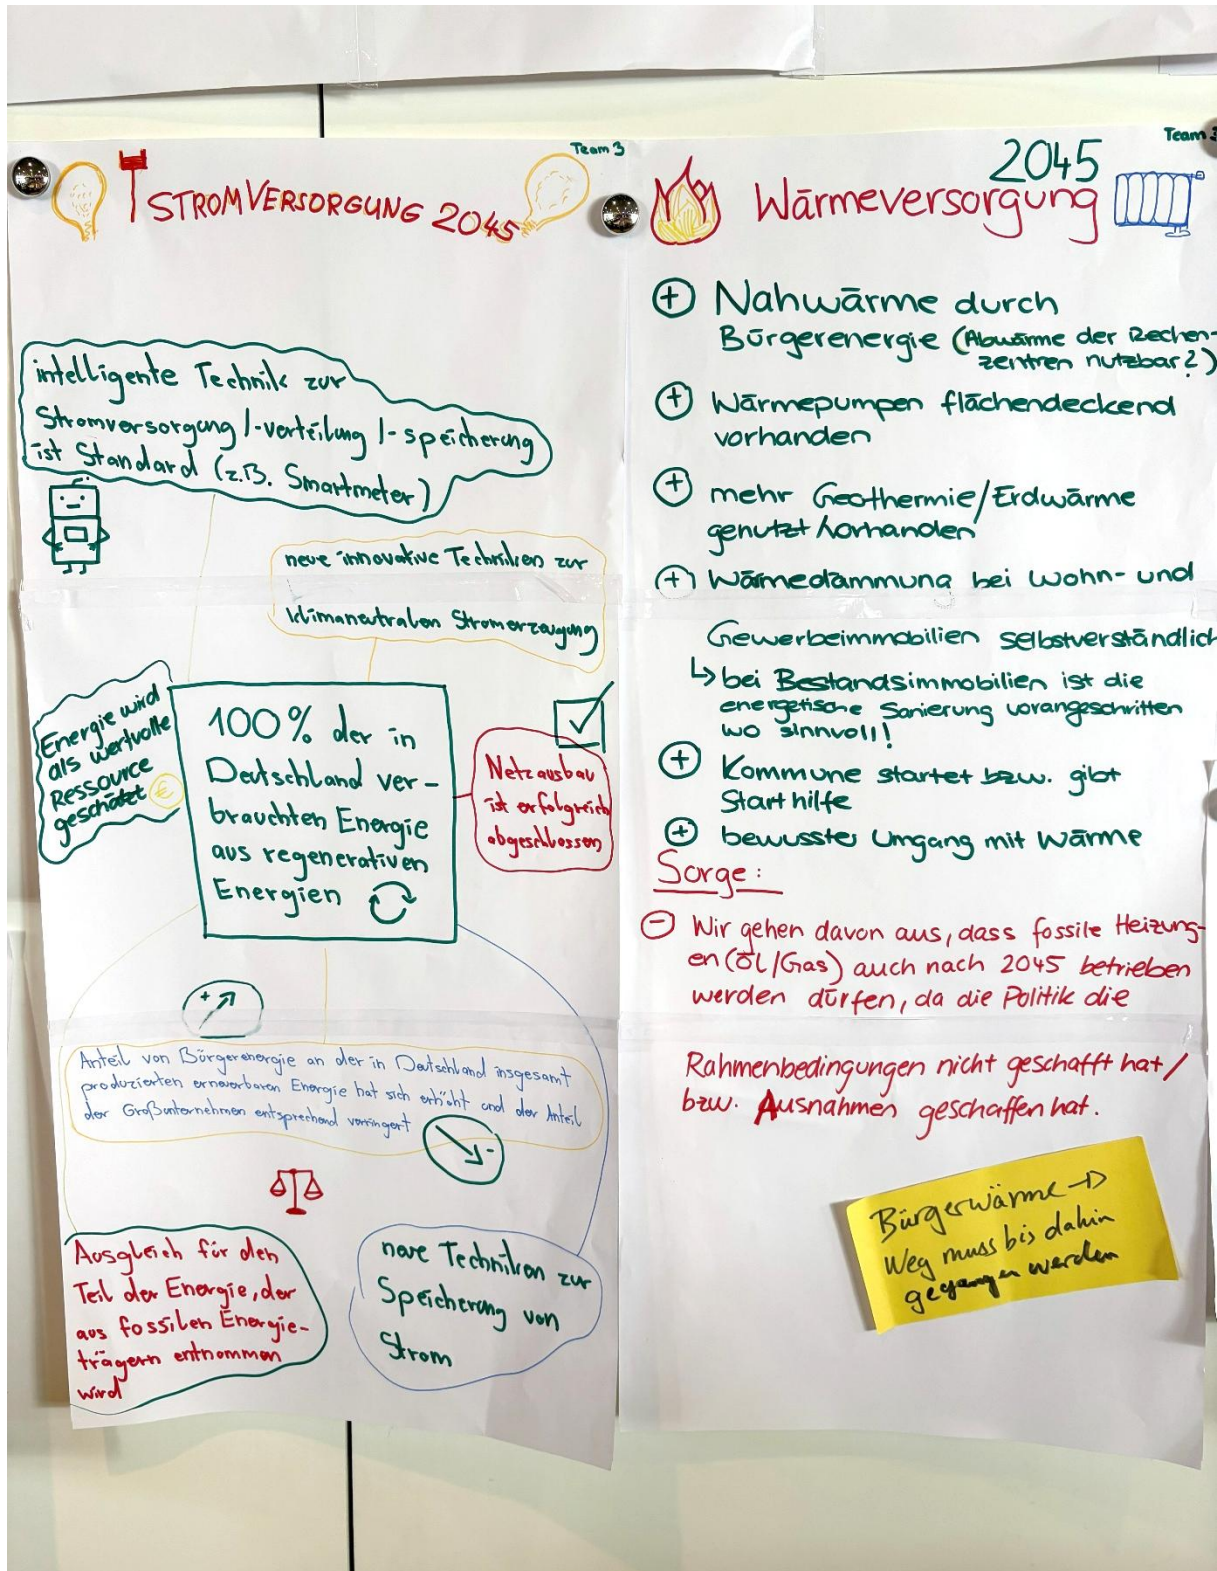 Team 3
STROMVERSORGUNG 2045
intelligente Technik zur
Stromversorgung/-verteilung/-speicherung
ist Standard (z.B. Smartmeter)
neue innovative Techniken zur
klimaneutralen Stromerzeugung
Energie wird
als wertvolle
Ressource
geschätzt €
100% der in
Deutschland ver-
brauchten Energie
aus regenerativen
Energien
Netzausbau
ist erfolgreich
abgeschlossen
+
Anteil von Bürgerenergie an der in Deutschland insgesamt
produzierten erneuerbaren Energie hat sich erhöht und der Anteil
der Großunternehmen entsprechend verringert
-
Ausgleich für den
Teil der Energie, der
aus fossilen Energie-
trägern entnommen
wird
neue Techniken zur
Speicherung von
Strom
Team 3
2045
Wärmeversorgung
+ Nahwärme durch
Bürgerenergie (Abwärme der Rechen-
zentren nutzbar?)
+ Wärmepumpen flächendeckend
vorhanden
+ mehr Geothermie/Erdwärme
genutzt/vorhanden
+ Wärmedämmung bei Wohn- und
Gewerbeimmobilien selbstverständlich
↳ bei Bestandsimmobilien ist die
energetische Sanierung vorangeschritten
wo sinnvoll!
+ Kommune startet bzw. gibt
Starthilfe
+ bewusster Umgang mit Wärme
Sorge:
- Wir gehen davon aus, dass fossile Heizung-
en (Öl/Gas) auch nach 2045 betrieben
werden dürfen, da die Politik die
Rahmenbedingungen nicht geschafft hat/
bzw. Ausnahmen geschaffen hat.
Bürgerwärme →
Weg muss bis dahin
gegangen werden